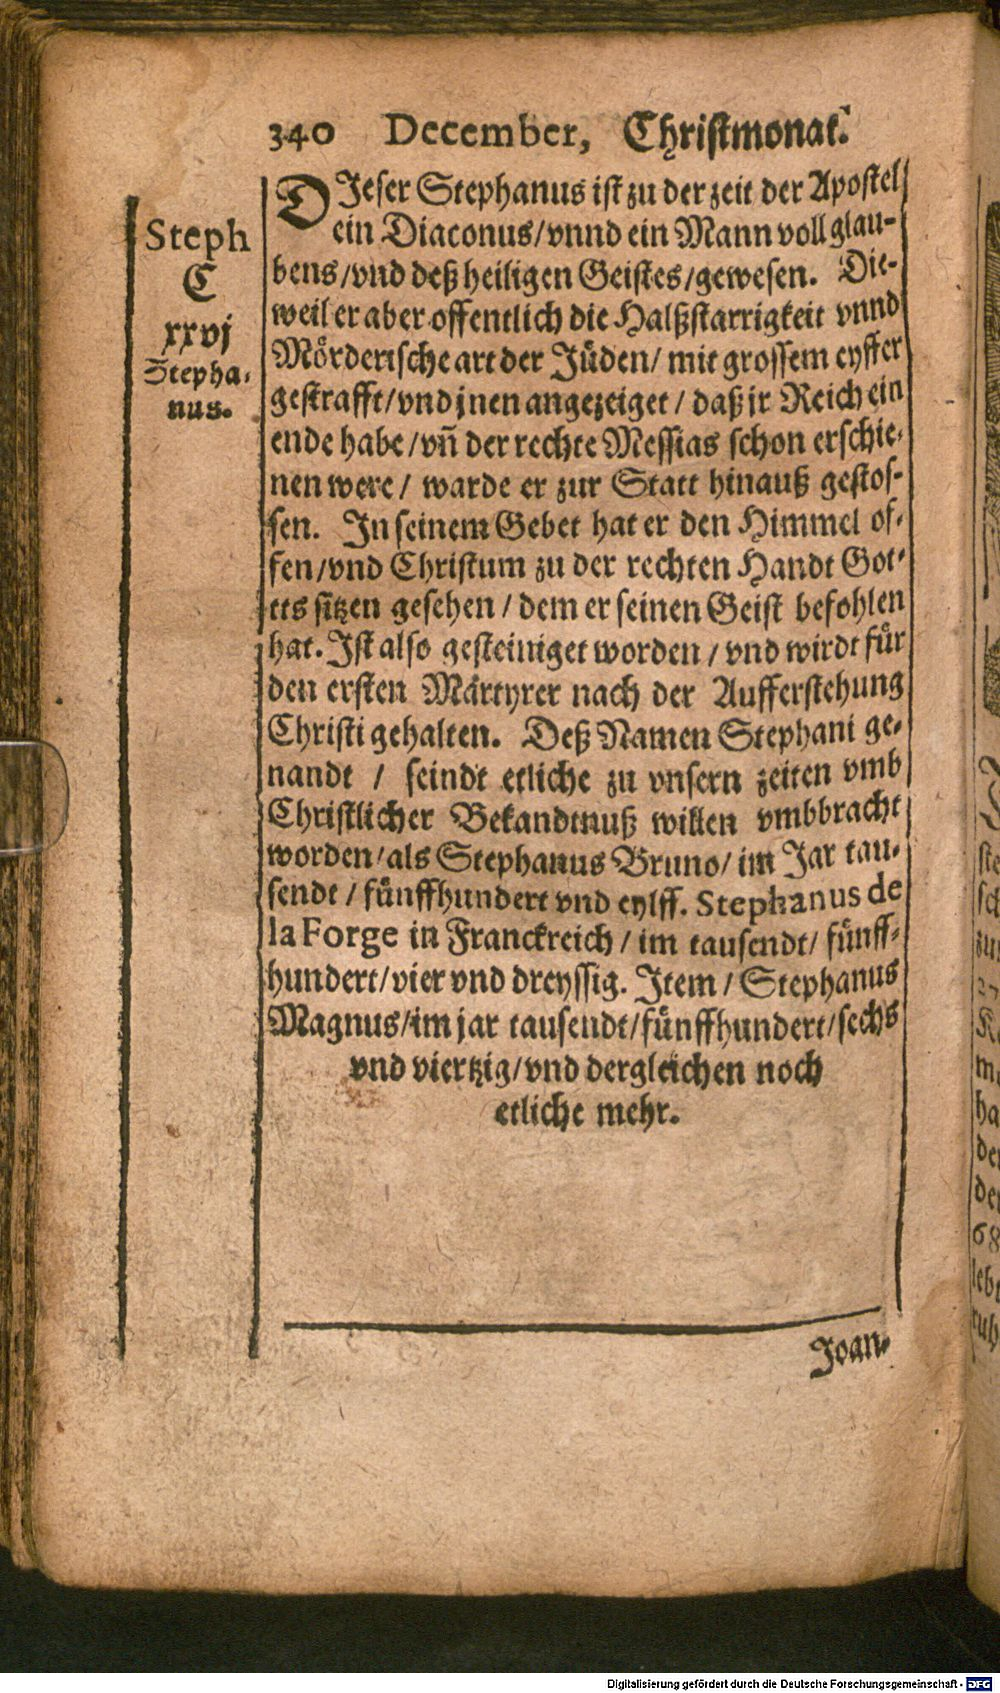 340 December, Christmonat.
Steph
C
xxvj
Stepha-
nus.
DJeser Stephanus ist zu der zeit der Apostel
ein Diaconus/vnnd ein Mann voll glau-
bens/vnd deß heiligen Geistes/gewesen. Die-
weil er aber offentlich die Halßstarrigkeit vnnd
Mörderische art der Jüden/ mit grossem eyffer
gestrafft/vnd jnen angezeiget/ daß jr Reich ein
ende habe/vñ der rechte Messias schon erschie-
nen were/ warde er zur Statt hinauß gestos-
sen. In seinem Gebet hat er den Himmel of-
fen/vnd Christum zu der rechten Handt Got-
tes sitzen gesehen/ dem er seinen Geist befohlen
hat. Ist also gesteiniget worden/ vnd wirdt für
den ersten Märtyrer nach der Aufferstehung
Christi gehalten. Deß Namen Stephani ge-
nandt / seindt etliche zu vnsern zeiten vmb
Christlicher Bekandtnuß willen vmbbracht
worden/als Stephanus Bruno/ im Jar tau-
sendt/ fünffhundert vnd eylff. Stephanus de
la Forge in Franckreich/ im tausendt/ fünff-
hundert/vier vnd dreyssig. Item/ Stephanus
Magnus/im jar tausendt/fünffhundert/sechs
vnd viertzig/vnd dergleichen noch
etliche mehr.
Joan-
Digitalisierung gefördert durch die Deutsche Forschungsgemeinschaft - DFG